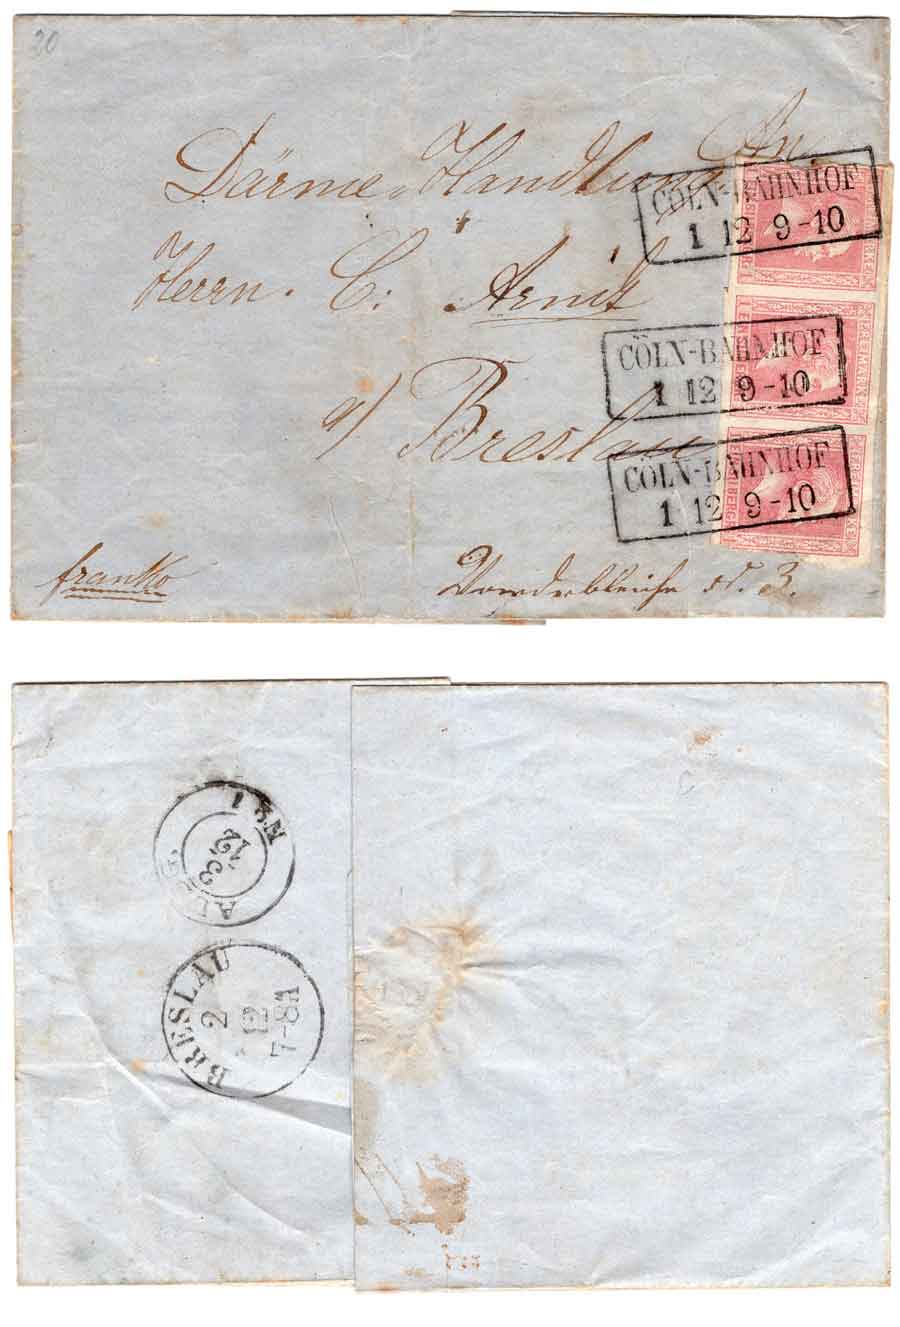 20
An
Därme-Handlung
Herrn C: Arndt
a/ Breslau
franko
Vorderbleiche N. 3.
CÖLN-BAHNHOF
1 12 9-10
CÖLN-BAHNHOF
1 12 9-10
CÖLN-BAHNHOF
1 12 9-10
No 1
3
12
BRESLAU
2
12
7-8